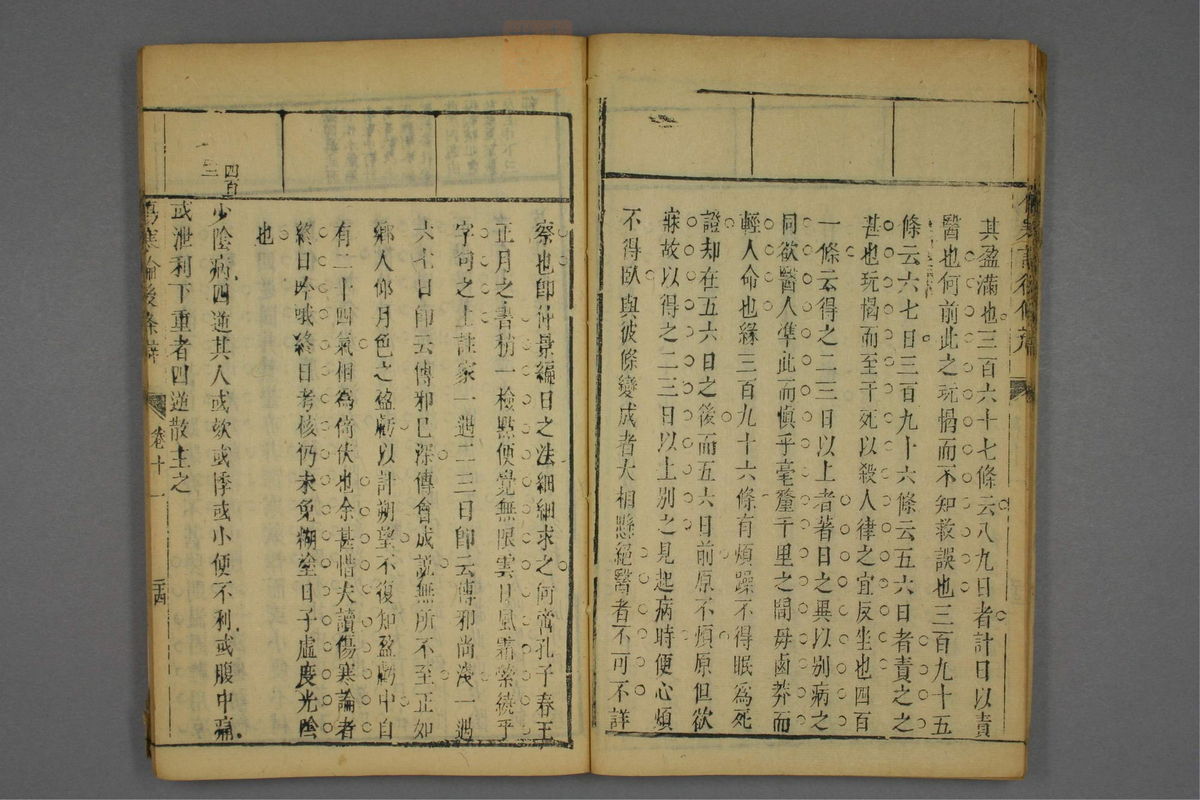 其盈滿也三百六十七條云八九日者計日以責
醫也何前此之玩愒而不知救誤也三百九十五
條云六七日三百九十六條云五六日者責之之
甚也玩愒而至于死以殺人律之宜反坐也四百
一條云得之二三日以上者著日之異以別病之
同欲醫人準此而慎乎毫釐千里之間毋鹵莽而
輕人命也緣三百九十六條有煩躁不得眠為死
證却在五六日之後而五六日前原不煩原但欲
寐故以得之二三日以上別之見起病時便心煩
不得臥與彼條變成者大相懸絕醫者不可不詳
察也卽仲景編日之法細細求之何啻孔子春王
正月之書稍一檢點便覺無限雲日風霜縈繞乎
字句之上註家一遇二三日卽云傳邪尚淺一遇
六七日卽云傳邪已深傳會成謊無所不至正如
鄉人仰月色之盈虧以計朔望不復知盈虧中自
有二十四氣相為倚伏也余甚惜夫讀傷寒論者
終日吟哦終日考核仍未免糊塗日子虛度光陰
也
四百
少陰病四逆其人或欬或悸或小便不利或腹中痛
或泄利下重者四逆散主之
寒論後條辨 卷十一